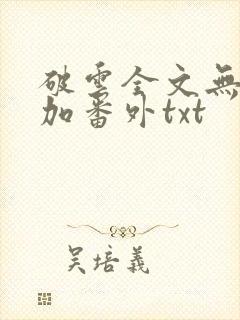 破雲全文無
加番外txt
吴培義